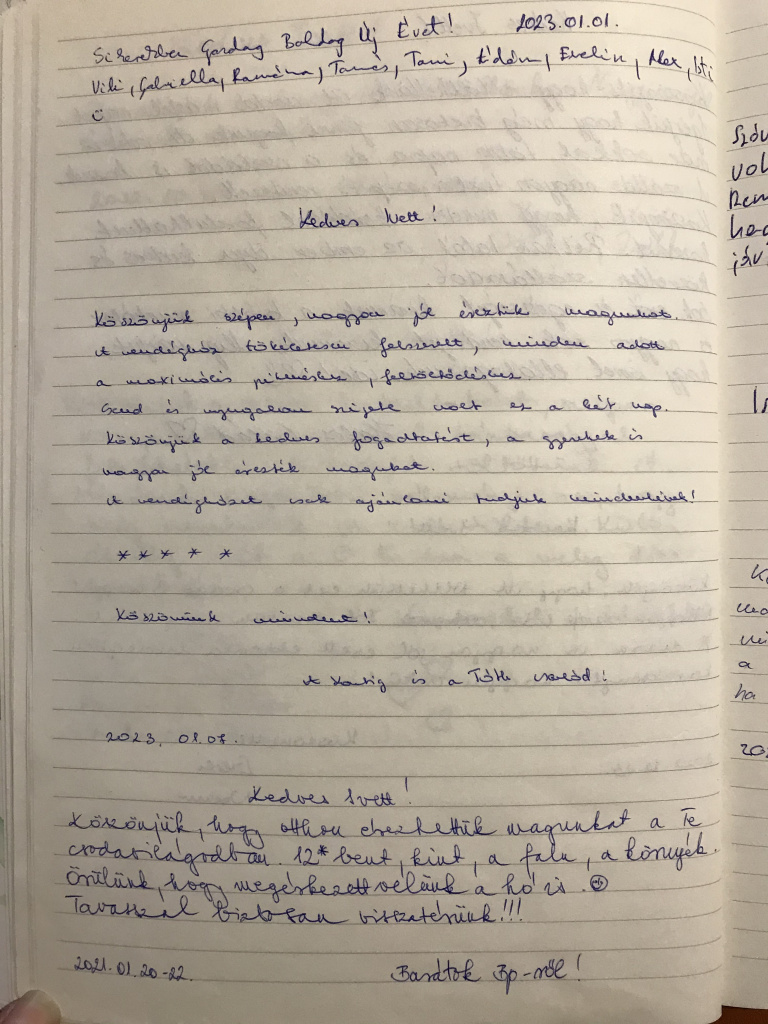 Sikerekben Gazdag Boldog Új Évet! 2023.01.01.
Vili, Gabriella, Ramóna, Tamás, Tomi, Ádám, Evelin, Alex, Isti
☺
Kedves Ivett!
Köszönjük szépen, nagyon jól éreztük magunkat.
A vendégház tökéletesen felszerelt, minden adott
a maximális pihenéshez, feltöltődéshez.
Csend és nyugalom szigete volt ez a két nap.
Köszönjük a kedves fogadtatást, a gyerekek is
nagyon jól érezték magukat.
A vendégházat csak ajánlani tudjuk mindenkinek!
* * * * *
Köszönünk mindent!
A és a Tóth család!
2023. 01.07.
Kedves Ivett!
Köszönjük, hogy otthon érezhettük magunkat a Te
csodavilágodban. 12* bent, kint, a falu, a környék.
Örülünk, hogy megérkezett velünk a hó is. ☺
Tavasszal biztosan visszatérünk!!!
2021.01.20-22. Barátok Bp-ről!